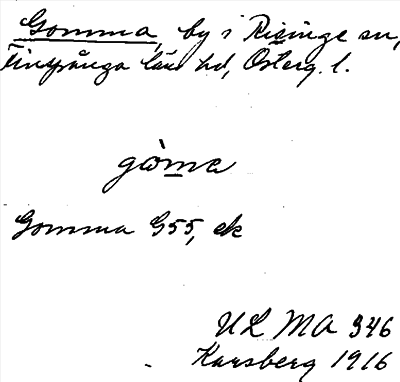 Gomma, by i Risinge sn,
Finspånga läns hd, Österg. l.
gòma
Gomma G55, ek
ULMA 346
Karsberg 1916